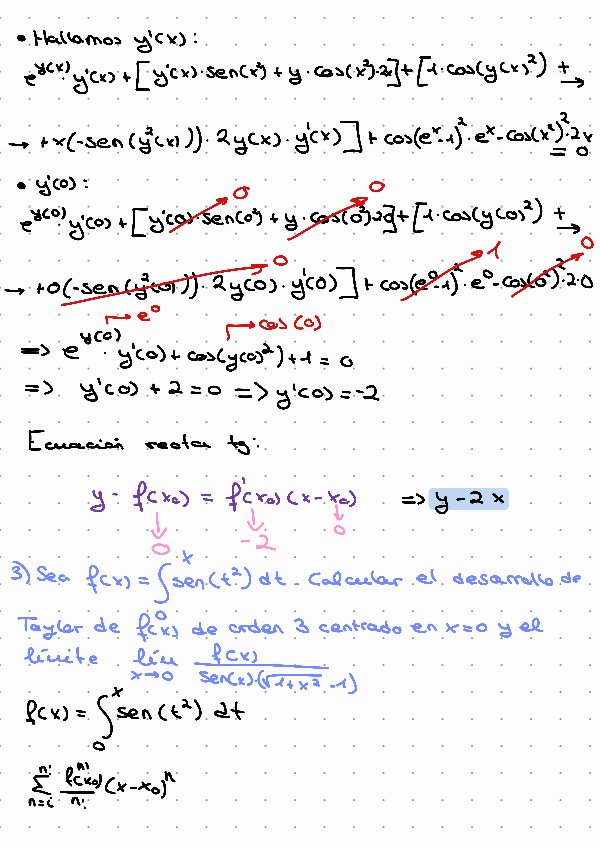 • Hallamos y'(x):
e^{y(x)}·y'(x) + [y'(x)·sen(x²) + y·cos(x²)·2x] + [1·cos(y(x)²) + →
→ +x(-sen(y²(x)))·2y(x)·y'(x)] + cos(e^x-1)²·e^x - cos(x²)²·2x = 0
• y'(0):
0 0
e^{y(0)}·y'(0) + [y'(0)·sen(0²) + y·cos(0²)·20] + [1·cos(y(0)²) + →
0 1 0
→ +0(-sen(y²(0)))·2y(0)·y'(0)] + cos(e^0-1)²·e^0 - cos(0²)²·2·0
e^0 cos(0)
=> e^{y(0)}·y'(0) + cos(y(0)²) + 1 = 0
=> y'(0) + 2 = 0 => y'(0) = -2
Ecuación rectar tg:
y - f(x₀) = f'(x₀)(x - x₀) => y - 2x
0 -2 0
3) Sea f(x) = ∫₀^x sen(t²) dt. Calcular el desarrollo de
Taylor de f(x) de orden 3 centrado en x=0 y el
límite lím_{x→0} f(x) / sen(x)·(√1+x² - 1)
f(x) = ∫₀^x sen(t²) dt
∑_{n=i}^{n!} f^{n!}(x₀)/n! (x - x₀)^n